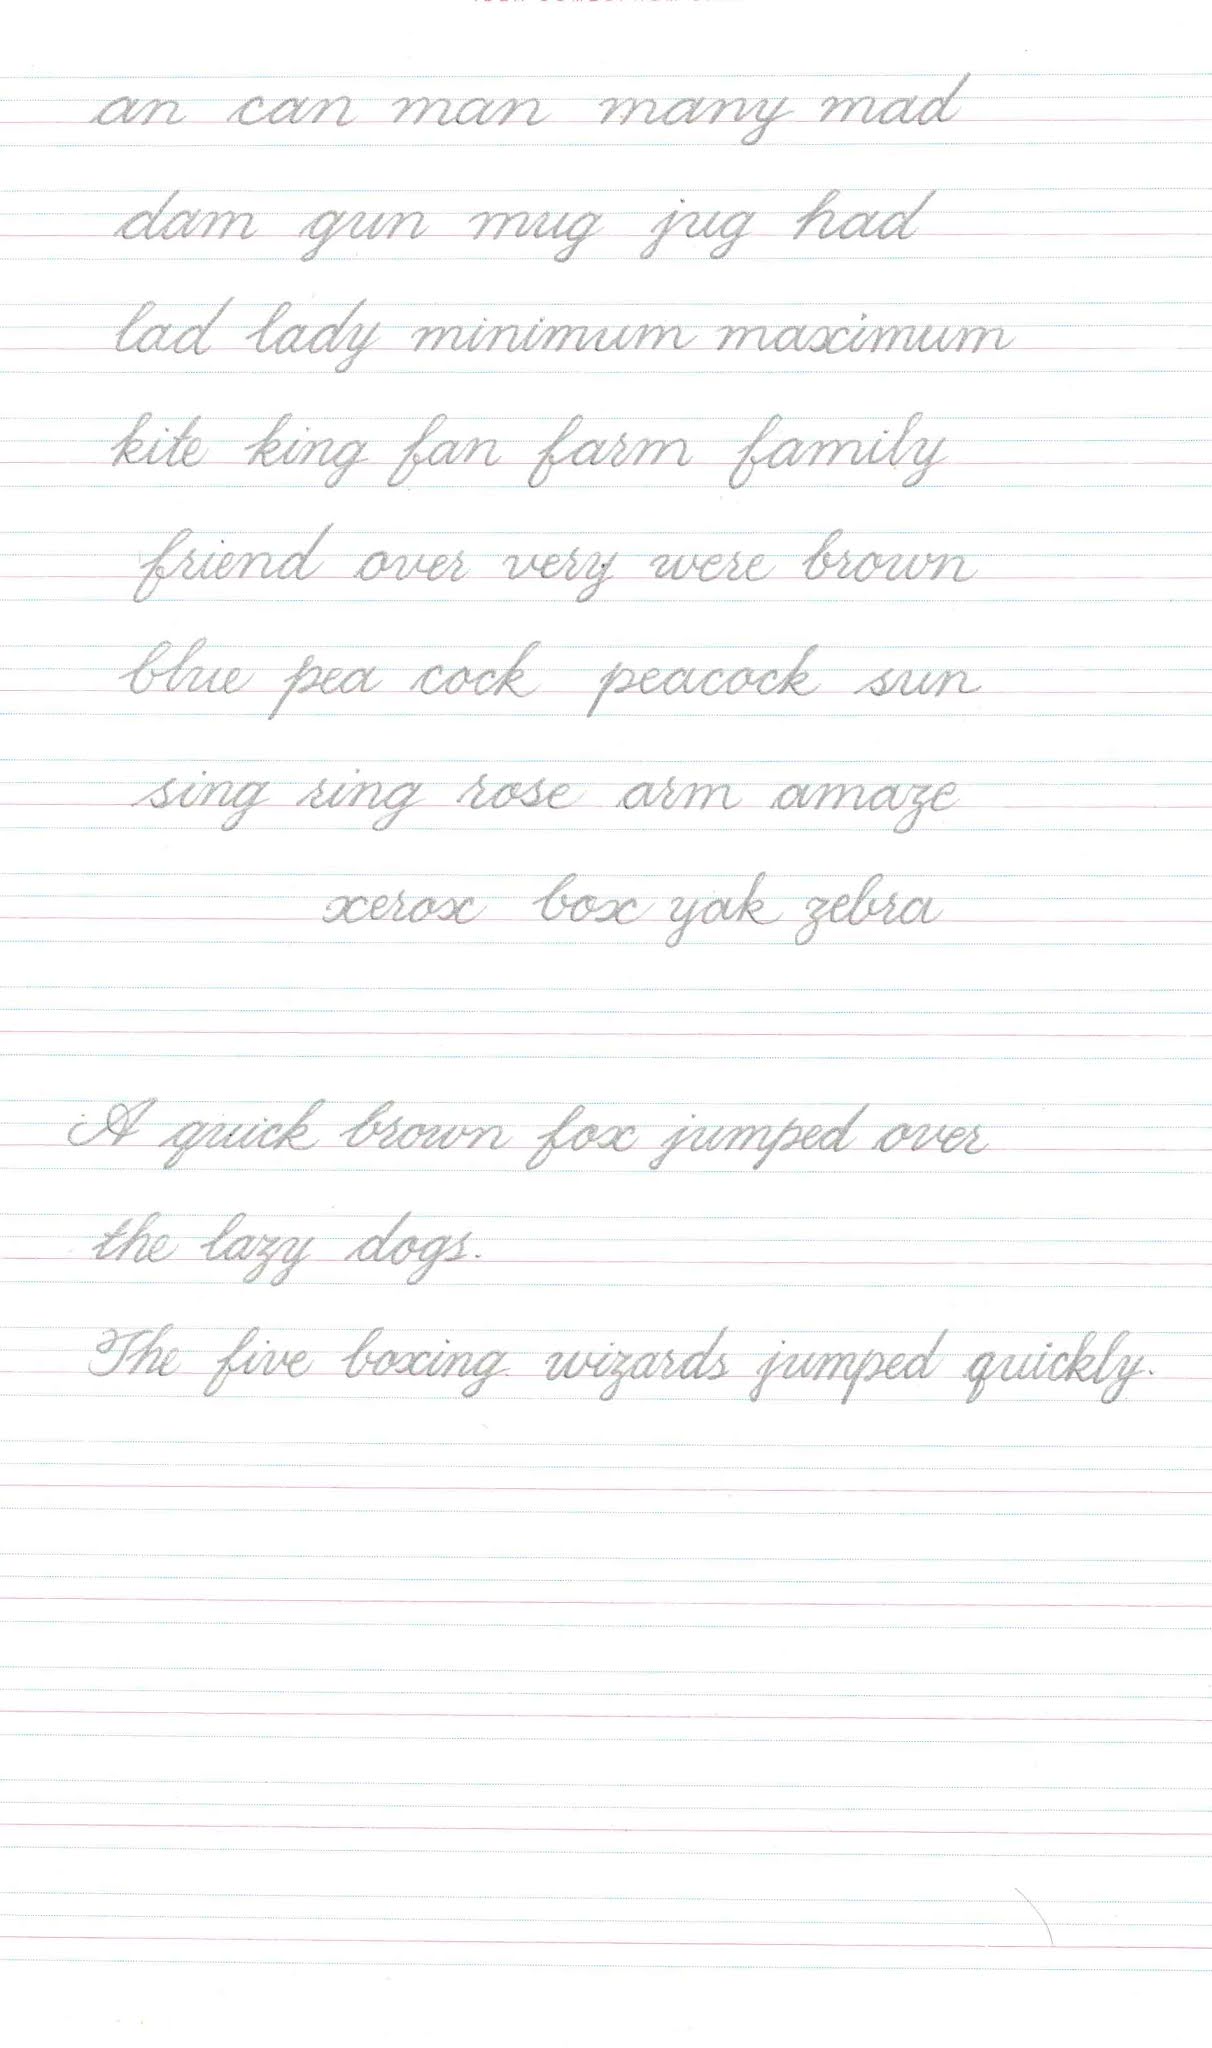 an can man many mad
dam gun mug jug had
lad lady minimum maximum
kite king fan farm family
friend over very were brown
blue pea cock peacock sun
sing ring rose arm amaze
xerox box yak zebra
A quick brown fox jumped over
the lazy dogs.
The five boxing wizards jumped quickly.